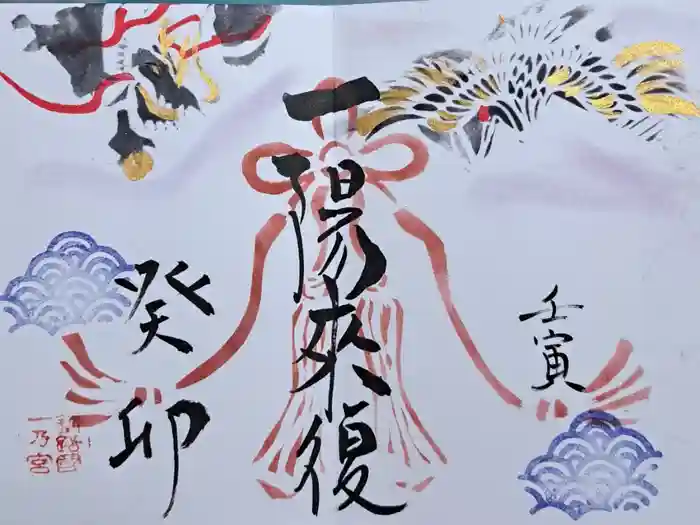 壬寅
一陽来復
癸卯
一乃宮